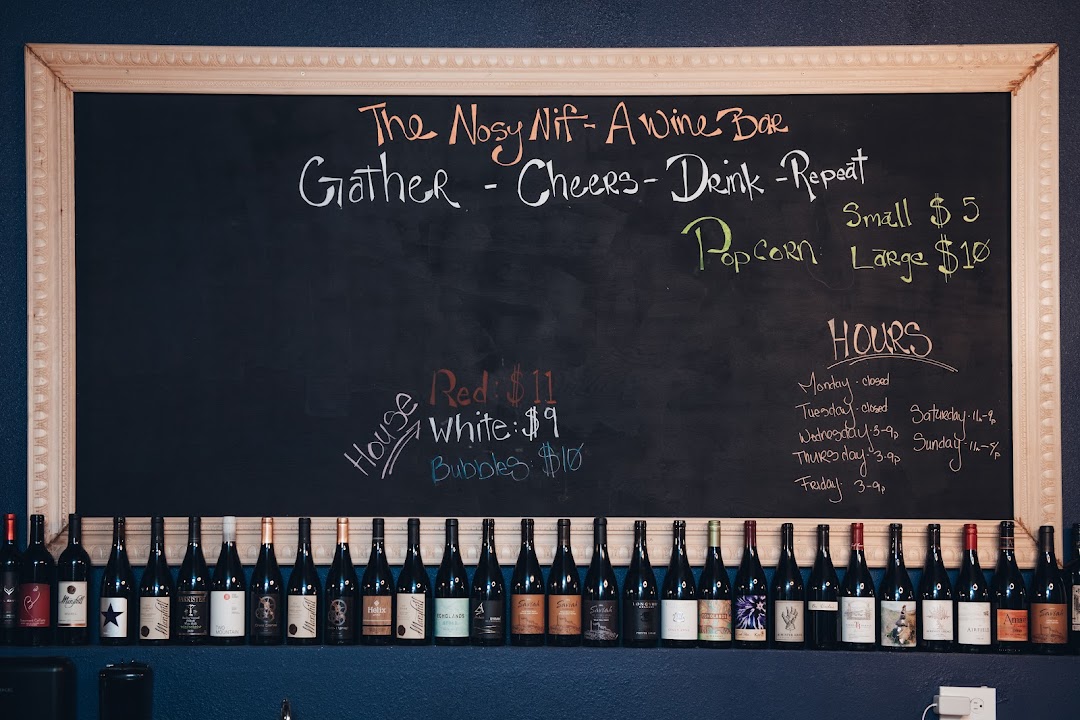 The Nosy Nif - A Wine Bar
Gather - Cheers - Drink - Repeat
Popcorn: Small $5
Large $10
House
Red: $11
White: $9
Bubbles: $10
HOURS
Monday - closed
Tuesday - closed
Wednesday - 3-9p
Thursday - 3-9p
Friday - 3-9p
Saturday - 11a-9p
Sunday - 11a-
Helix
Saviah
Saviah